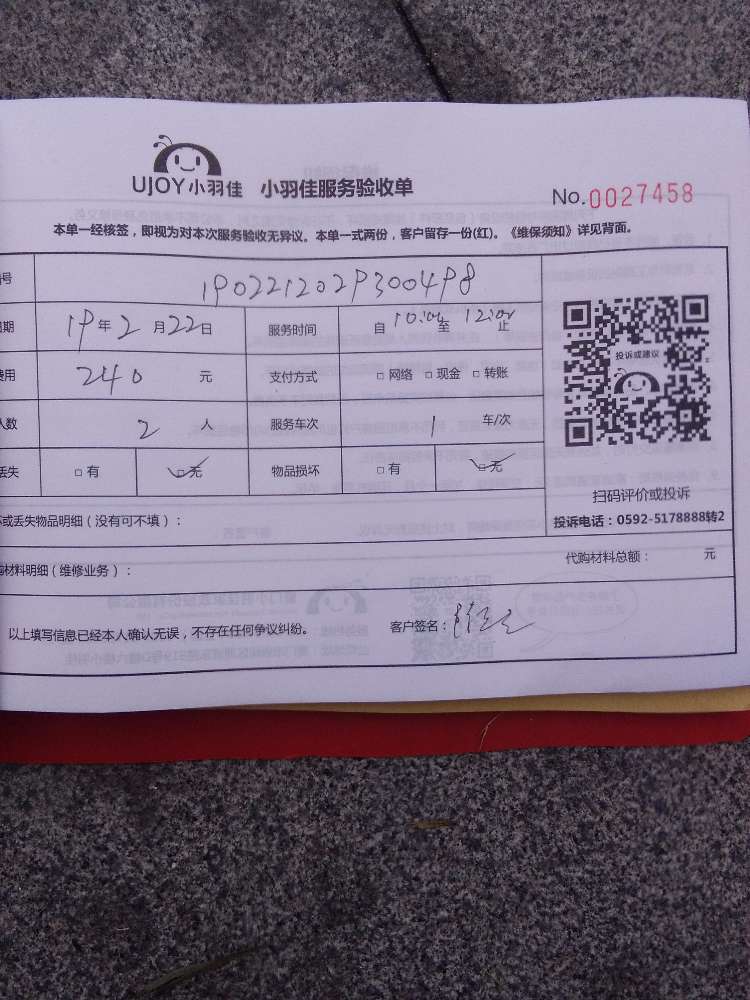 UJOY小羽佳 小羽佳服务验收单
No.0027458
本单一经核签，即视为对本次服务验收无异议。本单一式两份，客户留存一份(红)。《维保须知》详见背面。
号 1902212029300498
期 19年2月22日 服务时间 自10:00至12:00止
费用 240元 支付方式 □网络 □现金 □转账
人数 2人 服务车次 1车/次
丢失 □有 ☑无 物品损坏 □有 ☑无
投诉或建议
扫码评价或投诉
投诉电话：0592-5178888转2
或丢失物品明细（没有可不填）：
代购材料总额： 元
购材料明细（维修业务）：
以上填写信息已经本人确认无误，不存在任何争议纠纷。 客户签名：